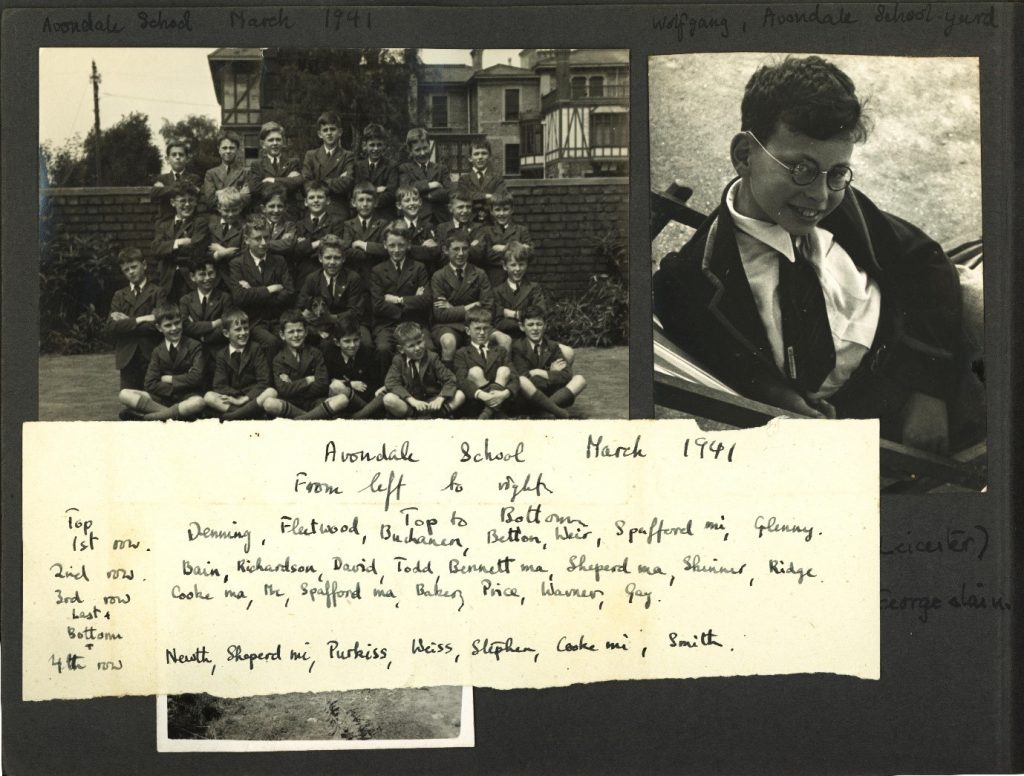 Avondale School March 1941
Wolfgang, Avondale School-yard
Avondale School March 1941
From left to right
Top to Bottom
Top
1st row. Denning, Fleetwood, Buchanan, Betton, Weir, Spafford mi, Glenny.
2nd row. Bain, Richardson, David, Todd, Bennett ma, Sheperd ma, Skinner, Ridge.
3rd row Cooke ma, Me, Spafford ma, Baker, Price, Warner, Gay.
Last +
Bottom
4th row Newth, Sheperd mi, Purkiss, Weiss, Stephen, Cooke mi, Smith.
Leicester)
George